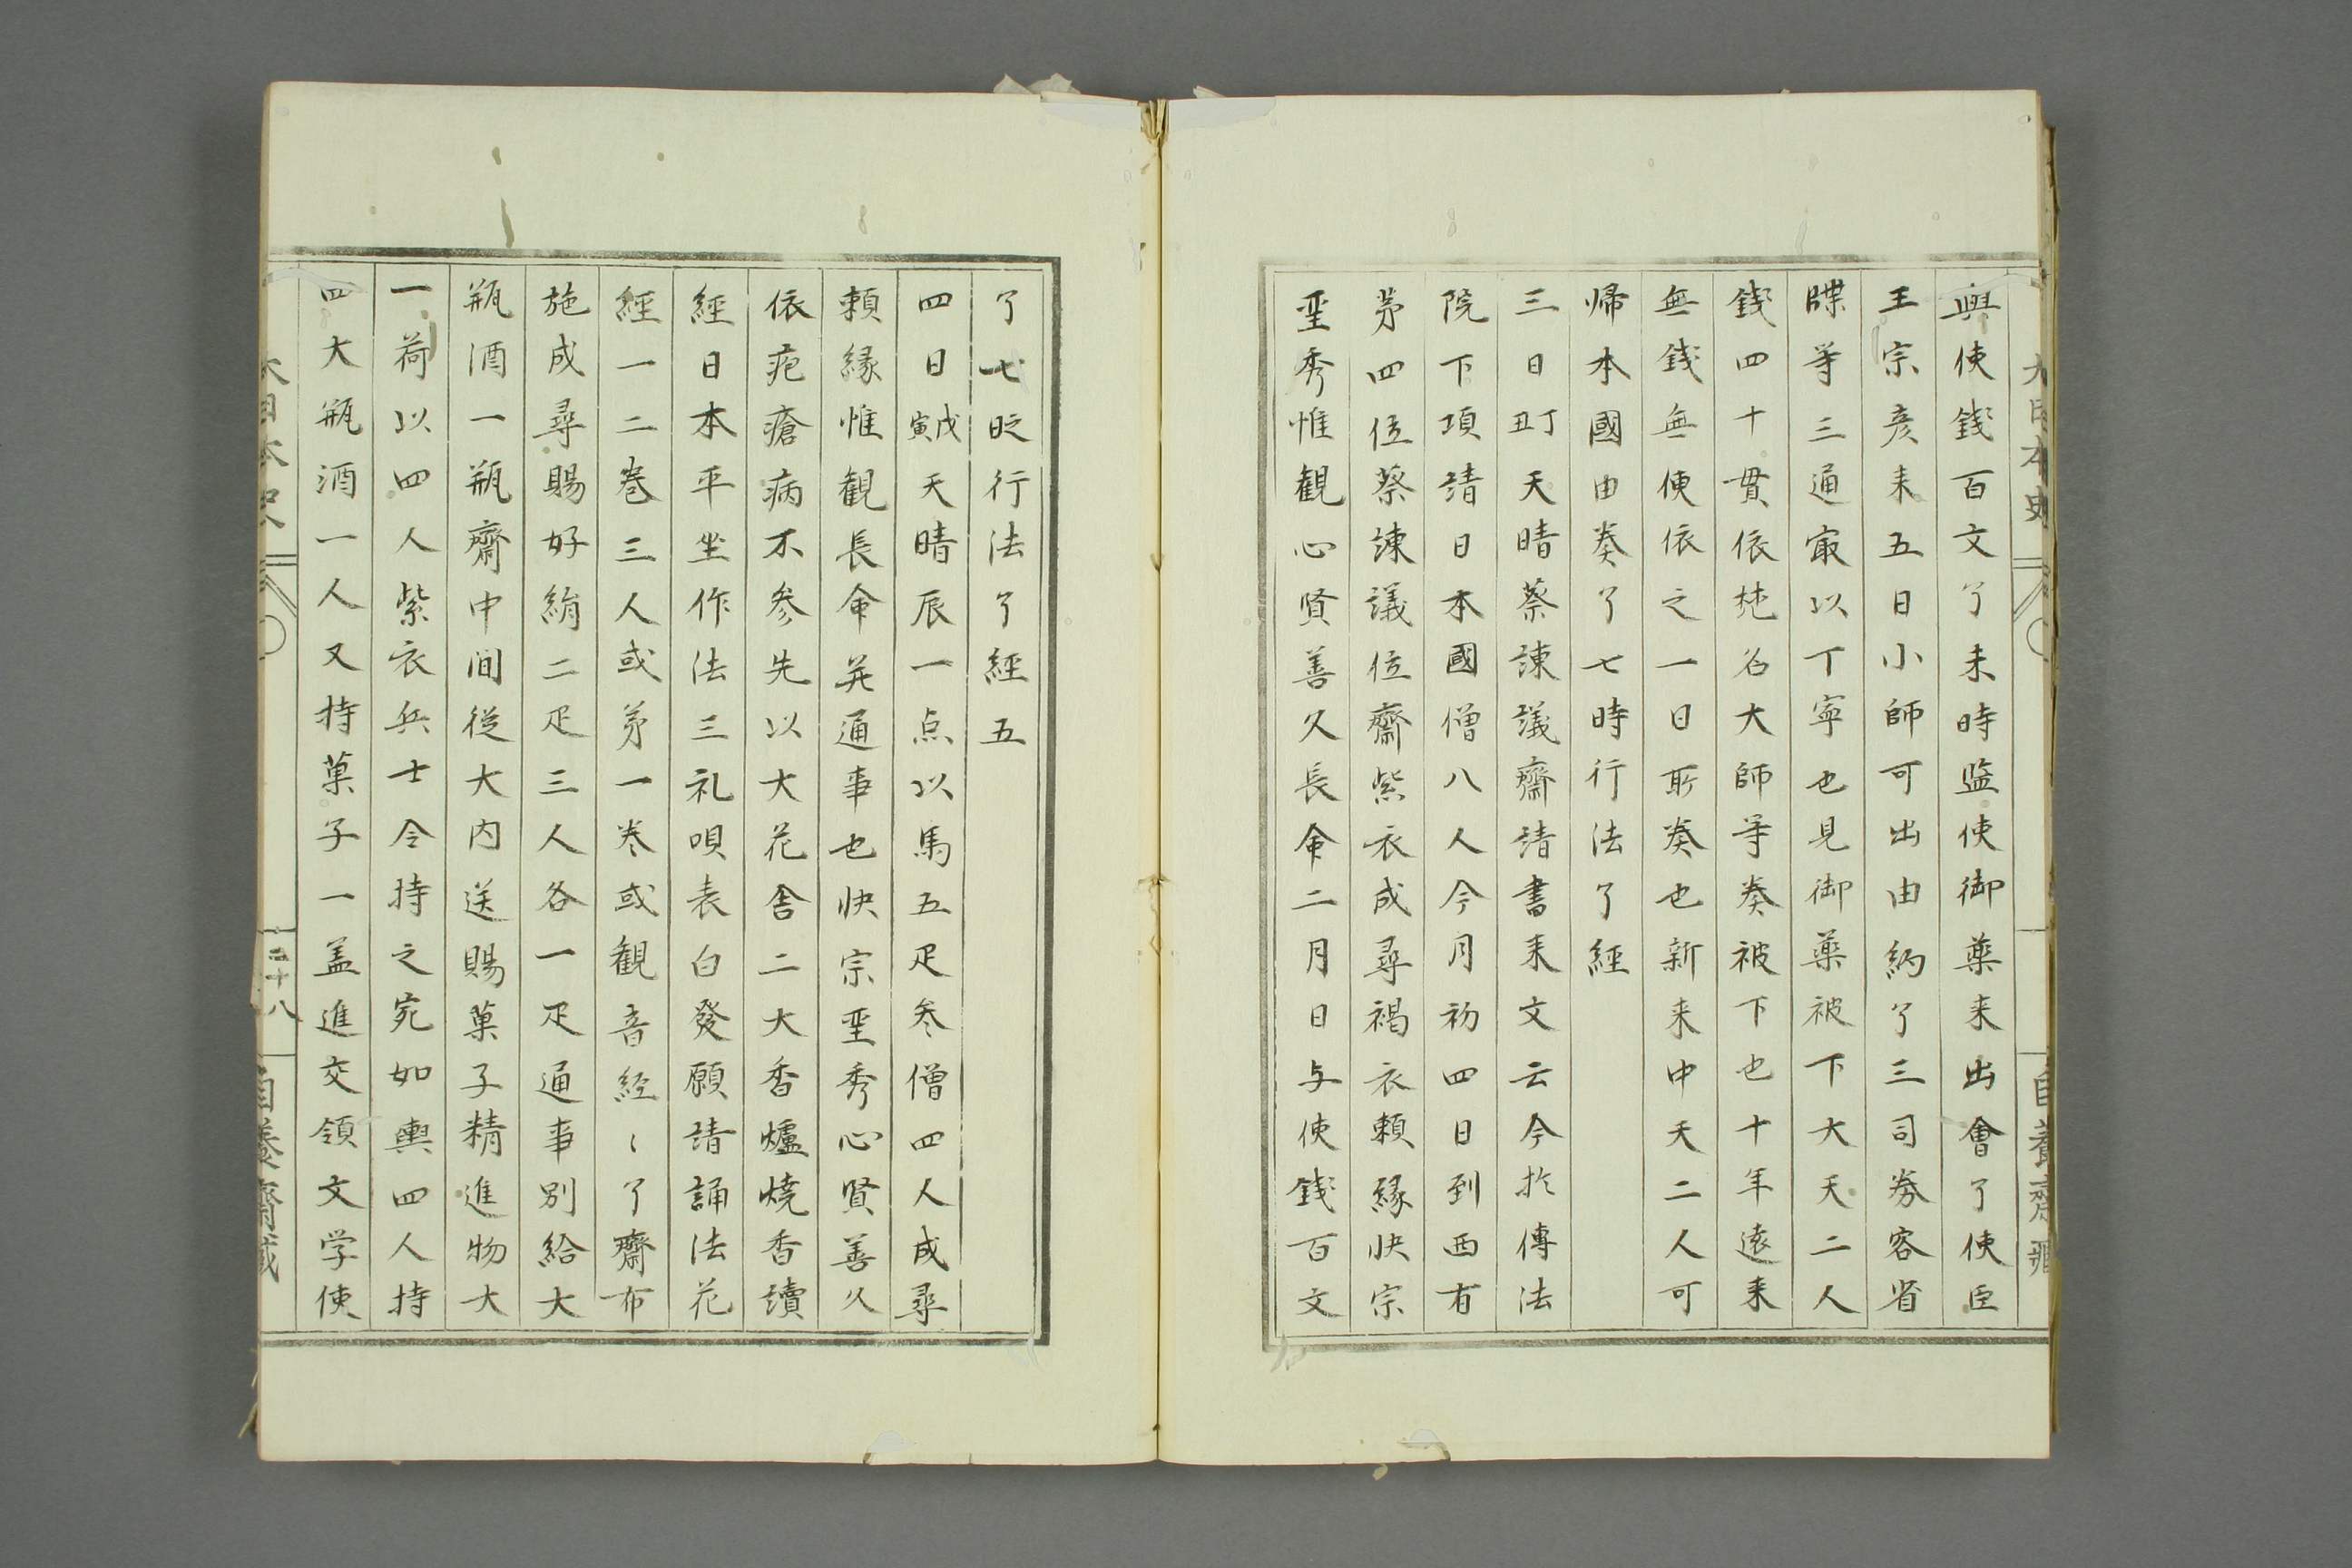 大日本史
自養齋藏
與使錢百文了未時監使御藥来出會了使臣
王宗彦来五日小師可出由納了三司劵客省
牒等三通㝡以丁寧也見御藥被下大天二人
錢四十貫依梵名大師等奏被下也十年遠来
無錢無便依之一日所奏也新来中天二人可
帰本國由奏了七時行法了經
三日丁丑天晴蔡諫議齋請書来文云今於傳法
院下項請日本國僧八人今月初四日到西有
苐四位蔡諫議位齋紫衣成尋褐衣頼縁快宗
聖秀惟観心賢善久長命二月日与使錢百文
了七時行法了經五
四日戊寅天晴辰一点以馬五疋参僧四人成尋
頼縁惟観長命并通事也快宗聖秀心賢善久
依疱瘡病不参先以大花舍二大香爐焼香讀
經日本平坐作法三礼唄表白發願請誦法花
經一二巻三人或苐一巻或観音経〻了齋布
施成尋賜好絹二疋三人各一疋通事別給大
瓶酒一瓶齋中間従大内送賜菓子精進物大
一荷以四人紫衣兵士令持之宛如輿四人持
四大瓶酒一人又持菓子一盖進交領文学使
大日本史
二十八
自養齋藏